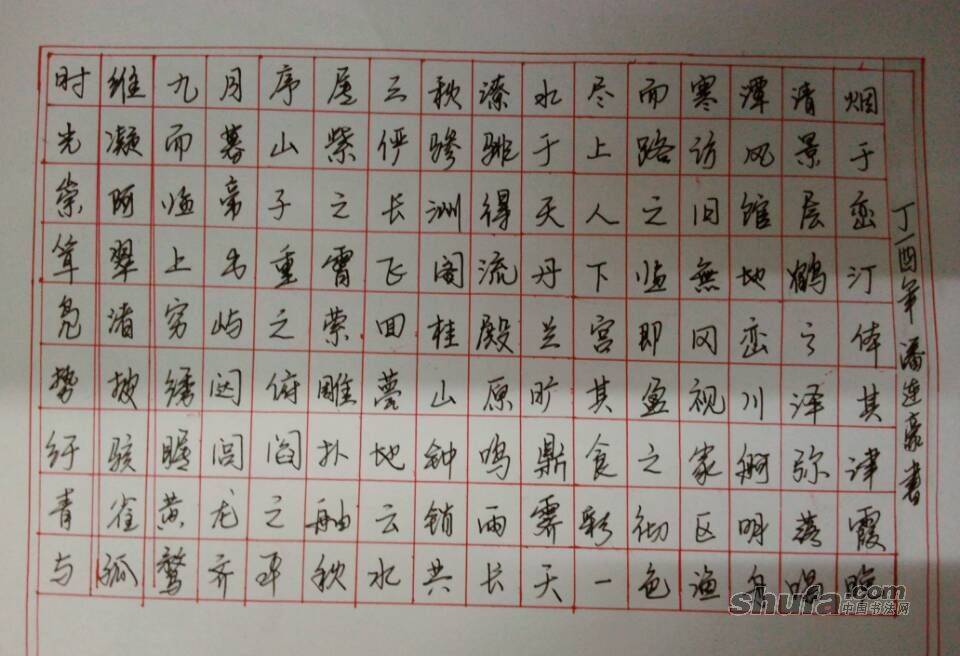 时维九月序属三秋潦水尽而寒潭清烟
光凝而暮山紫俨骖騑于上路访风景于
崇阿临帝子之长洲得天人之旧馆层峦
耸翠上出重霄飞阁流丹下临無地鹤汀
凫渚穷屿之萦回桂殿兰宫即冈峦之体
势披绣闼俯雕甍山原旷其盈视川泽其
纡骇瞩闾阎扑地钟鸣鼎食之家舸弥津
青雀黄龙之舳云销雨霁彩彻区明落霞
与孤鹜齐平秋水共长天一色渔舟唱
丁酉年 潘连豪書
shufa.com
中国书法网